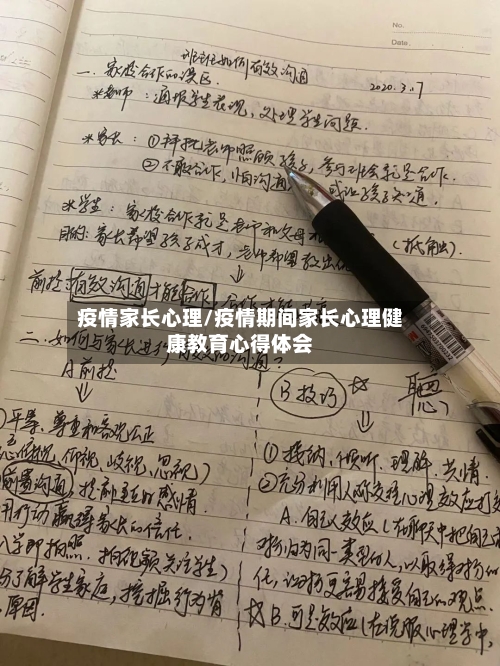 No.
Date
班主任如何有效沟通
一、家校合作的误区
2020.3.17
*老师：通报学生表现，处理学生问题.
*家长：①拜托老师照顾孩子，参与班会就是合作.
②不敢合作，怕沟通
*学生：家校合作就是老师和父母
（抵触）.
目的：家长希望孩子成才，老师希望教出
前提：有效沟通才能合作
疫情家长心理/疫情期间家长心理健
康教育心得体会
二、如何与家长进行有效的沟通？
A前提
B技巧
聽
①平等，尊重和客观公正
俯视，仰视，歧视，忽视）
沟通
用行动赢得家长的信任.
入学即拍照.拍视频关注学生）
了解学生家庭，挖掘行为背
原因.
①接纳，倾听.理解.共情.
②充分利用人际交往心理效应
A.自己人效应（在聊天中把自己
对方归为同一类型的人，以取得对方的
信任，让对方更容易接受自己的观点.
B.可是效应（在说服心理学中，